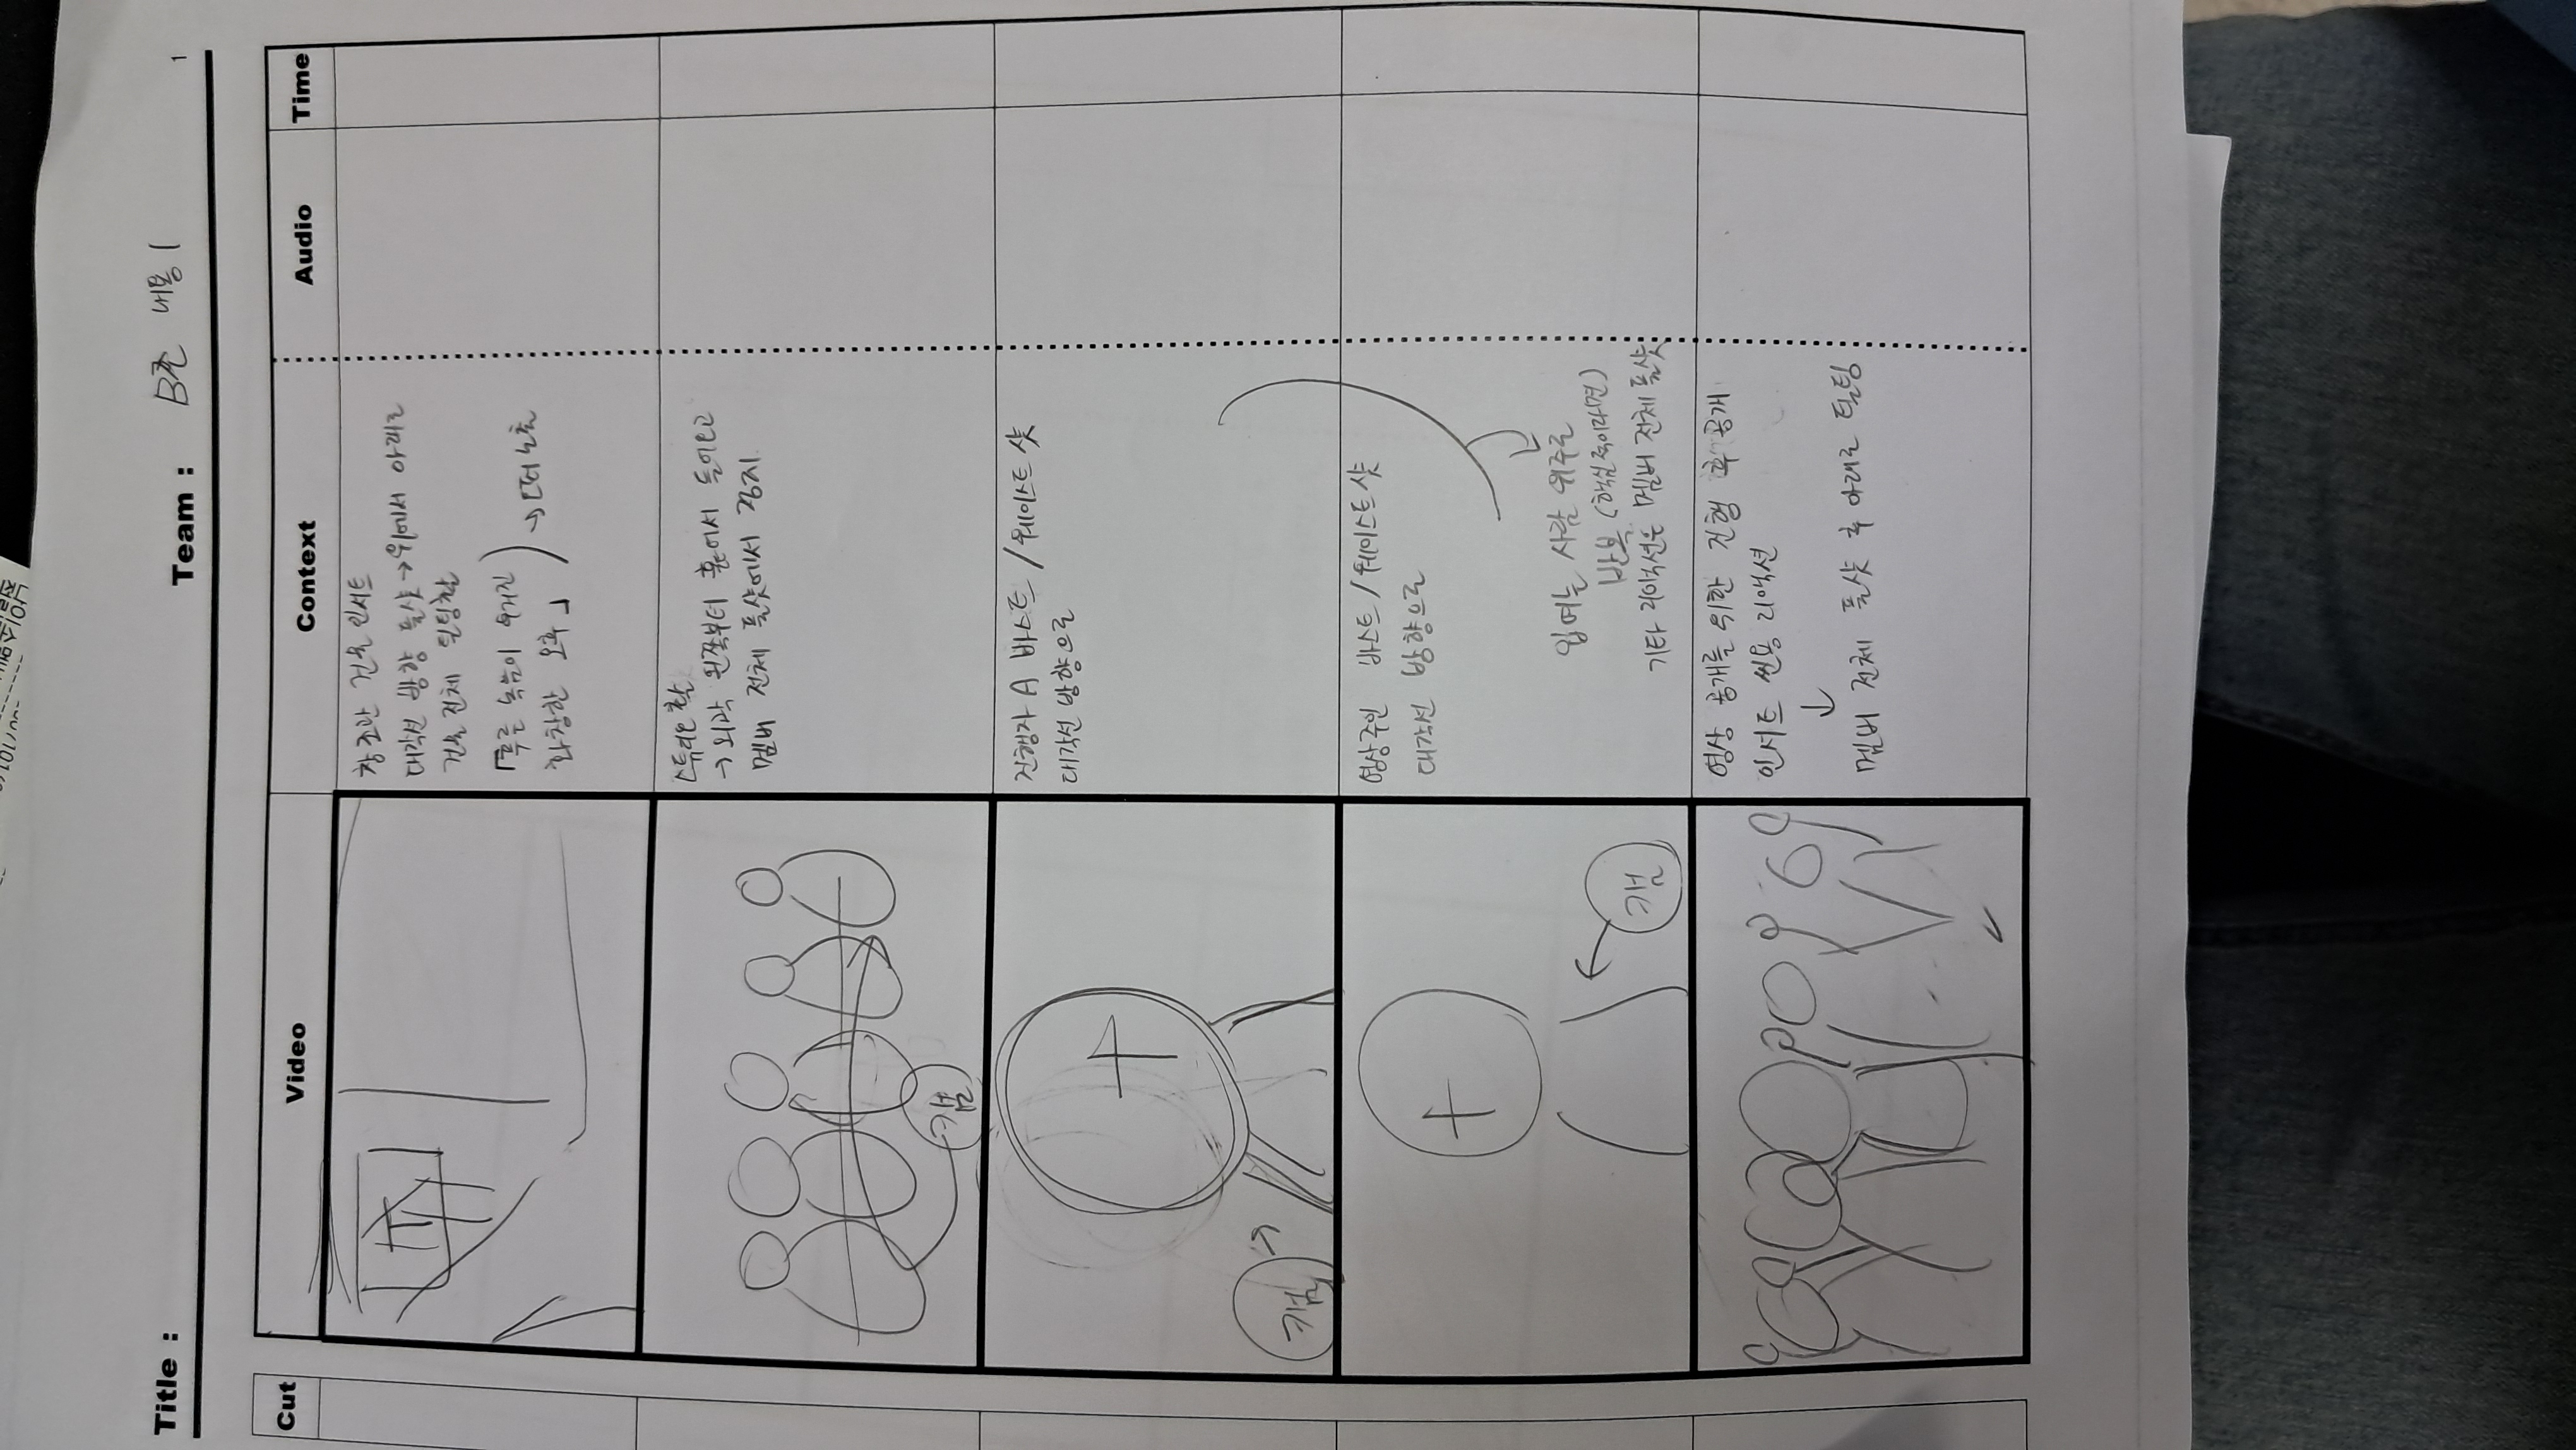 Title :
Team : B조 내용 1
1
Cut
Video
Context
Audio
Time
창조관 건물 인서트
대각선 방향 풀샷 → 위에서 아래로
건물 전체 틸팅촬
「푸른 녹음이 우거진
화창한 오후」
→ 노출
스튜디오 촬
→ 외곽 왼쪽부터 훑어서 들어오고
멤버 전체 풀샷에서 정지
캠
진행자 A 바스트 / 웨이스트 샷
대각선 방향으로
캠 →
영상주인 바스트 / 웨이스트 샷
대각선 방향으로
입 여는 사람 위주로
반복 (핵심적이라면)
기타 리액션은 멤버 전체 풀샷
캠
영상 공개를 위한 진행 후 공개
인서트 씬용 리액션
↓
멤버 전체 풀샷 후 아래로 틸팅